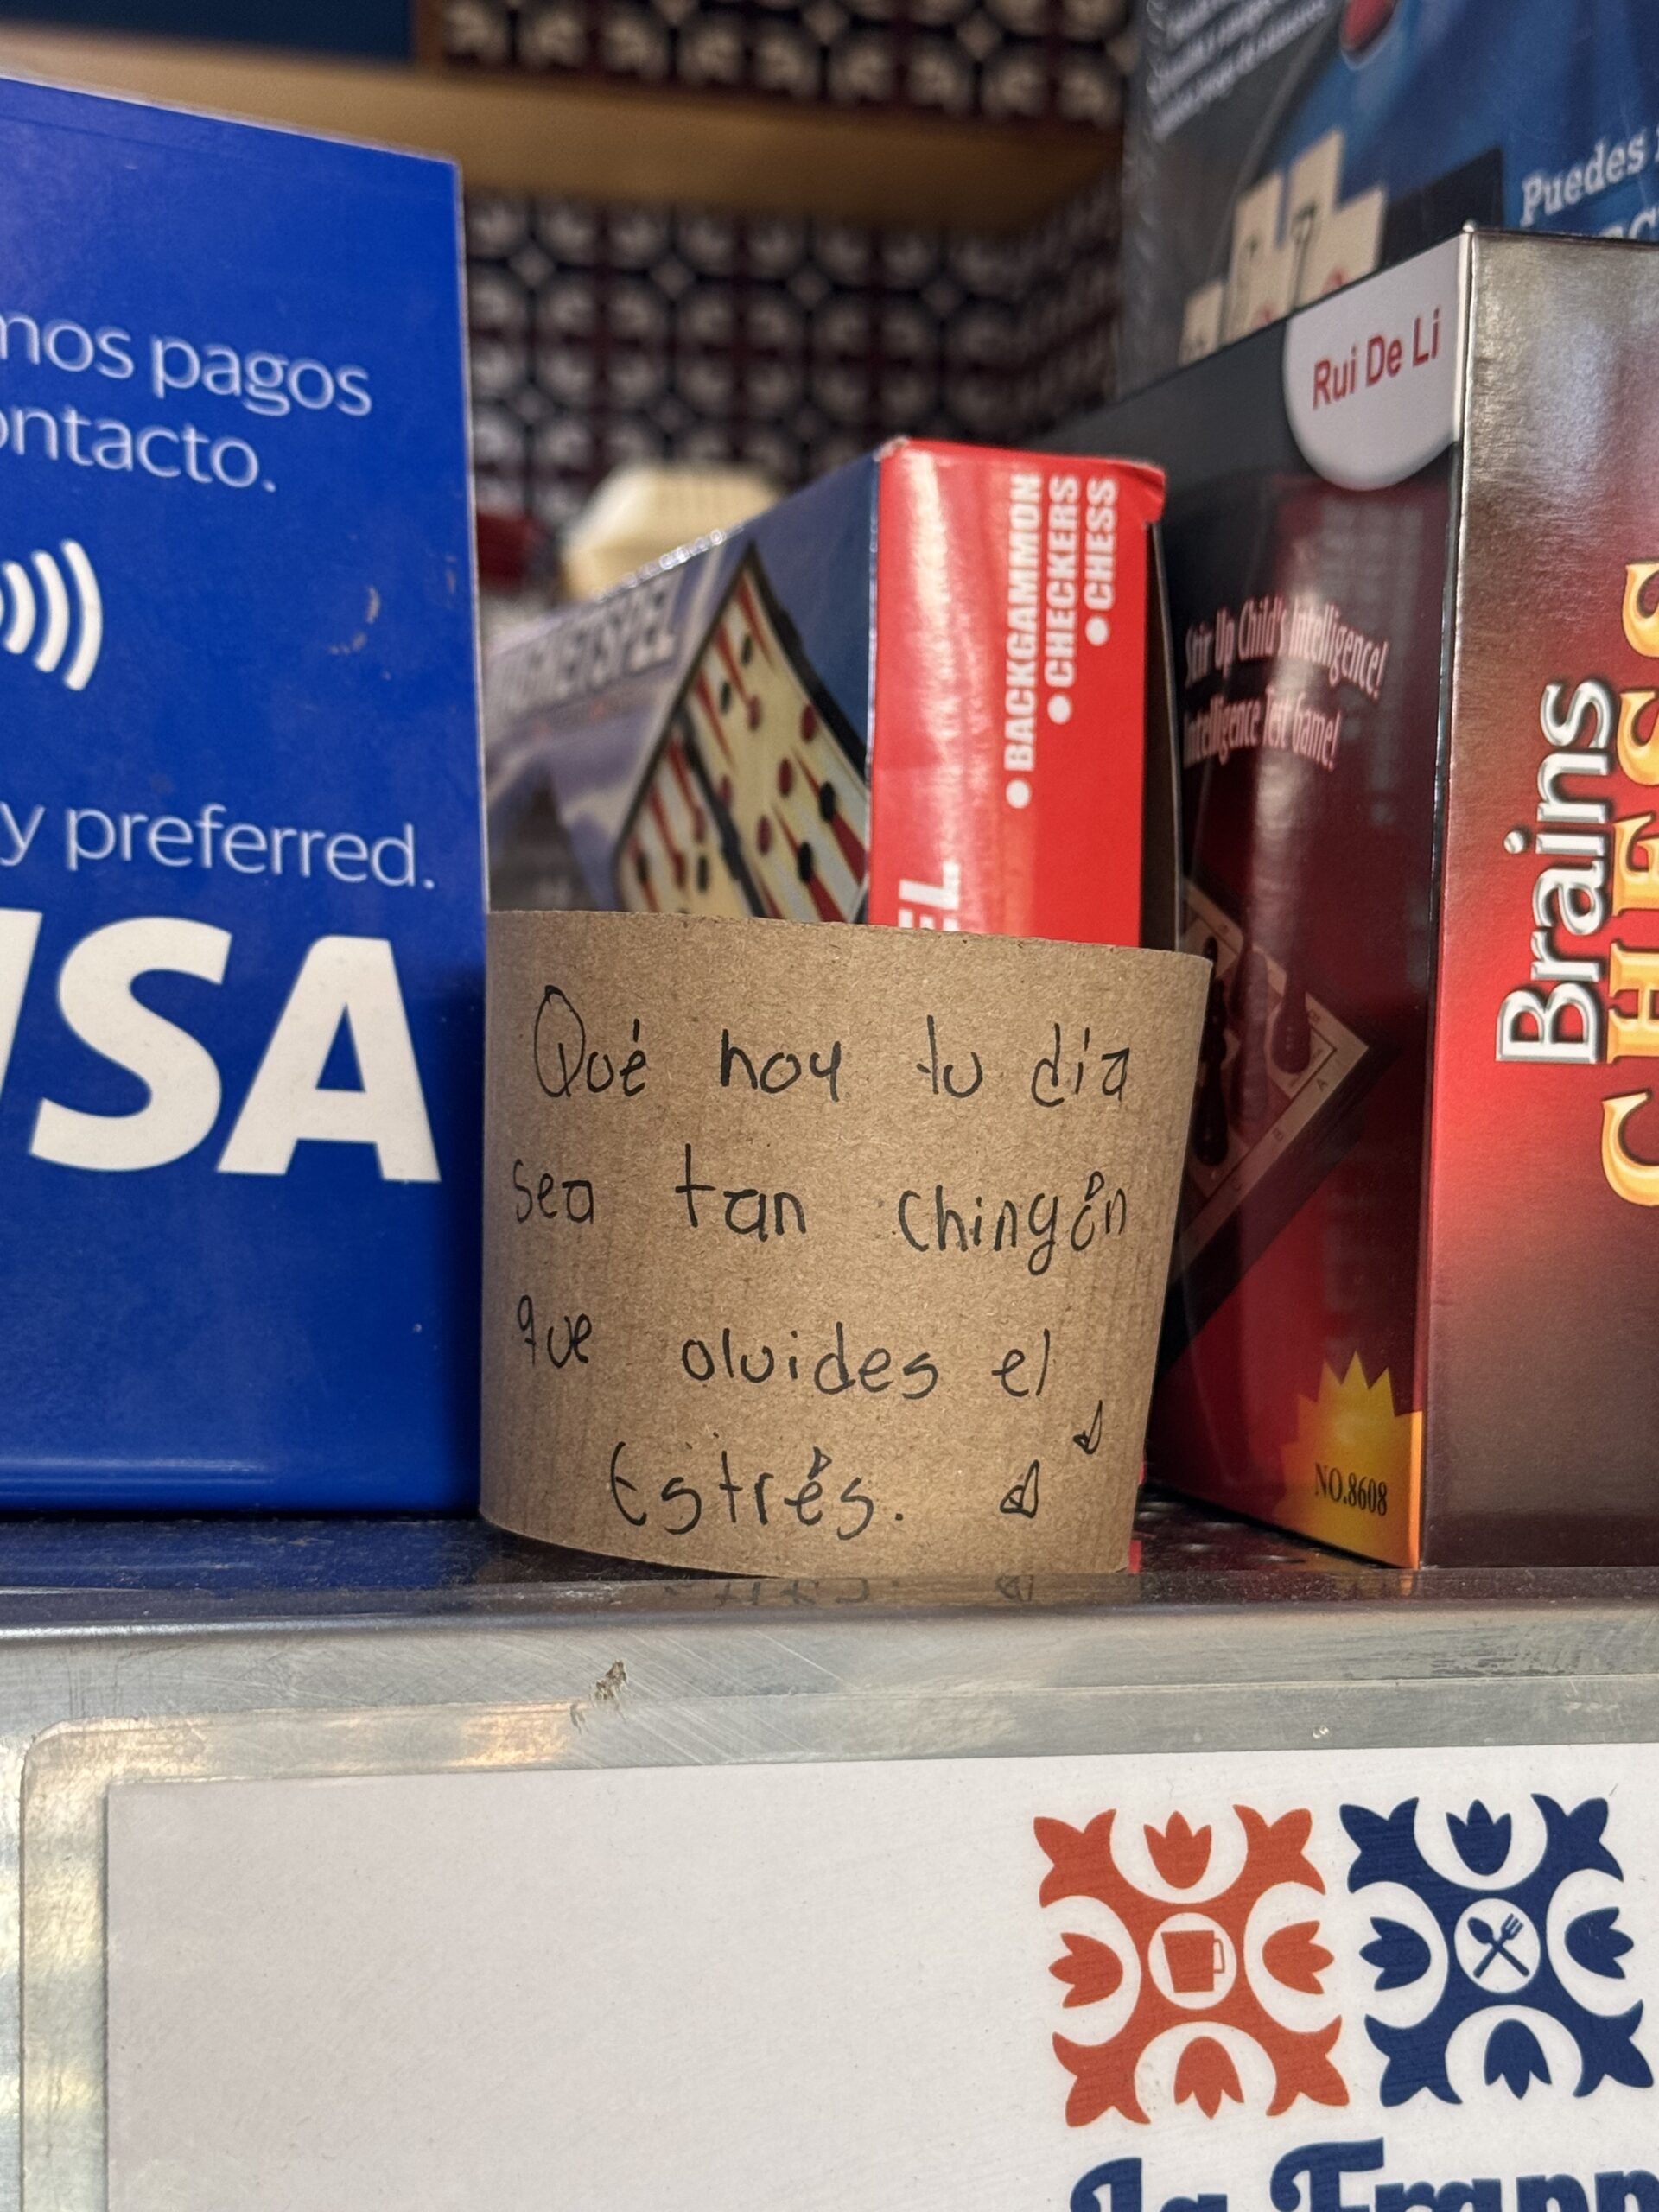 mos pagos
ontacto.
y preferred.
VISA
Puedes
Rui De Li
• BACKGAMMON
• CHECKERS
• CHESS
EL
Stir Up Child's Intelligence!
Intelligence Test Game!
Brains
CHESS
NO.8608
Qué hoy tu día
sea tan chingón
que olvides el
Estrés.
La Frapp